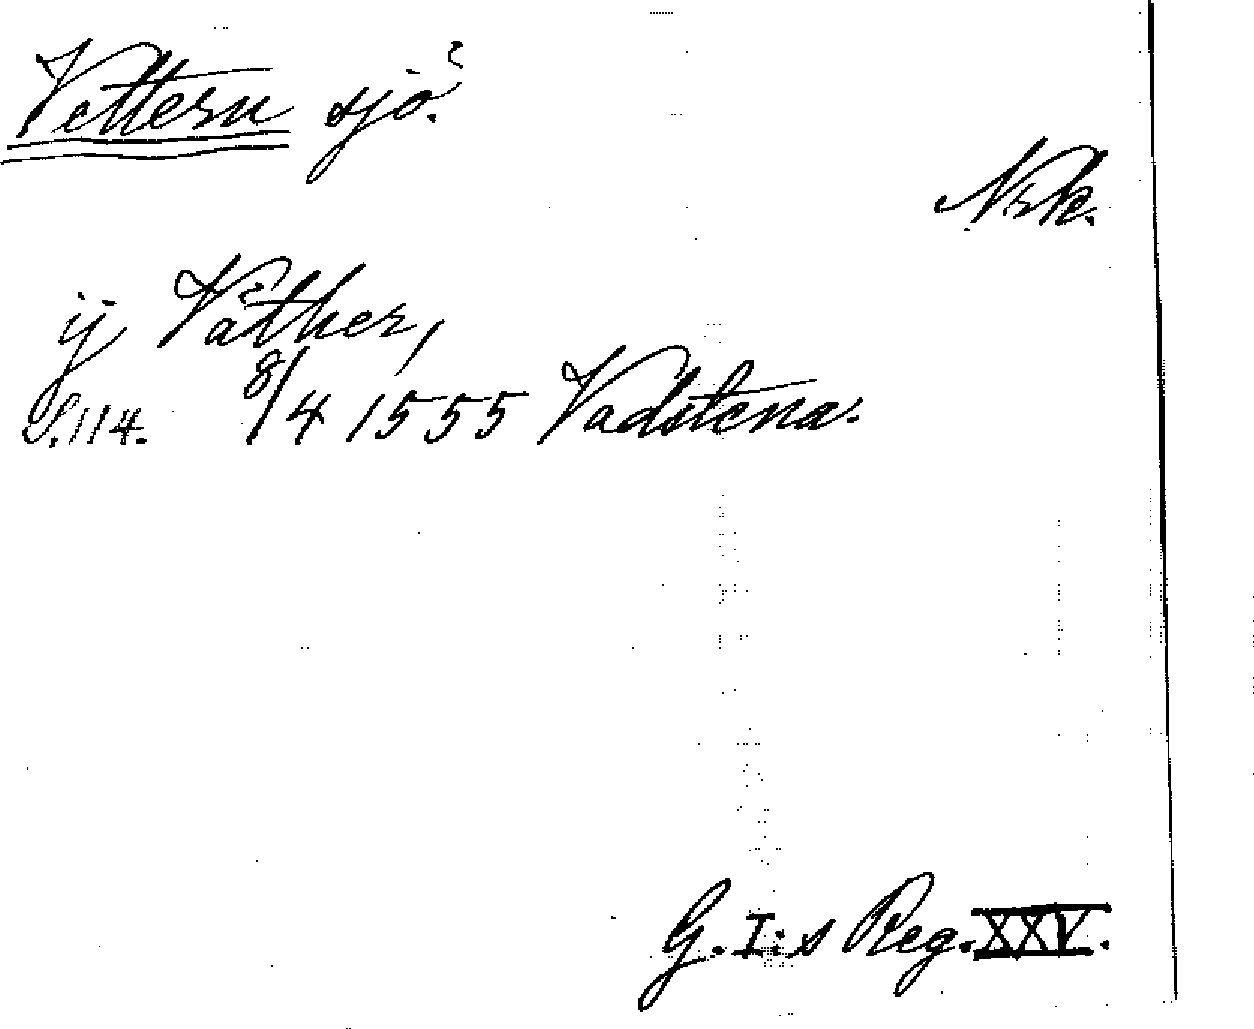 Vettern sjö.
Nrk.
ij Väther,
S. 114. 8/4 1555 Vadstena.
G. I:s Reg. XXV.